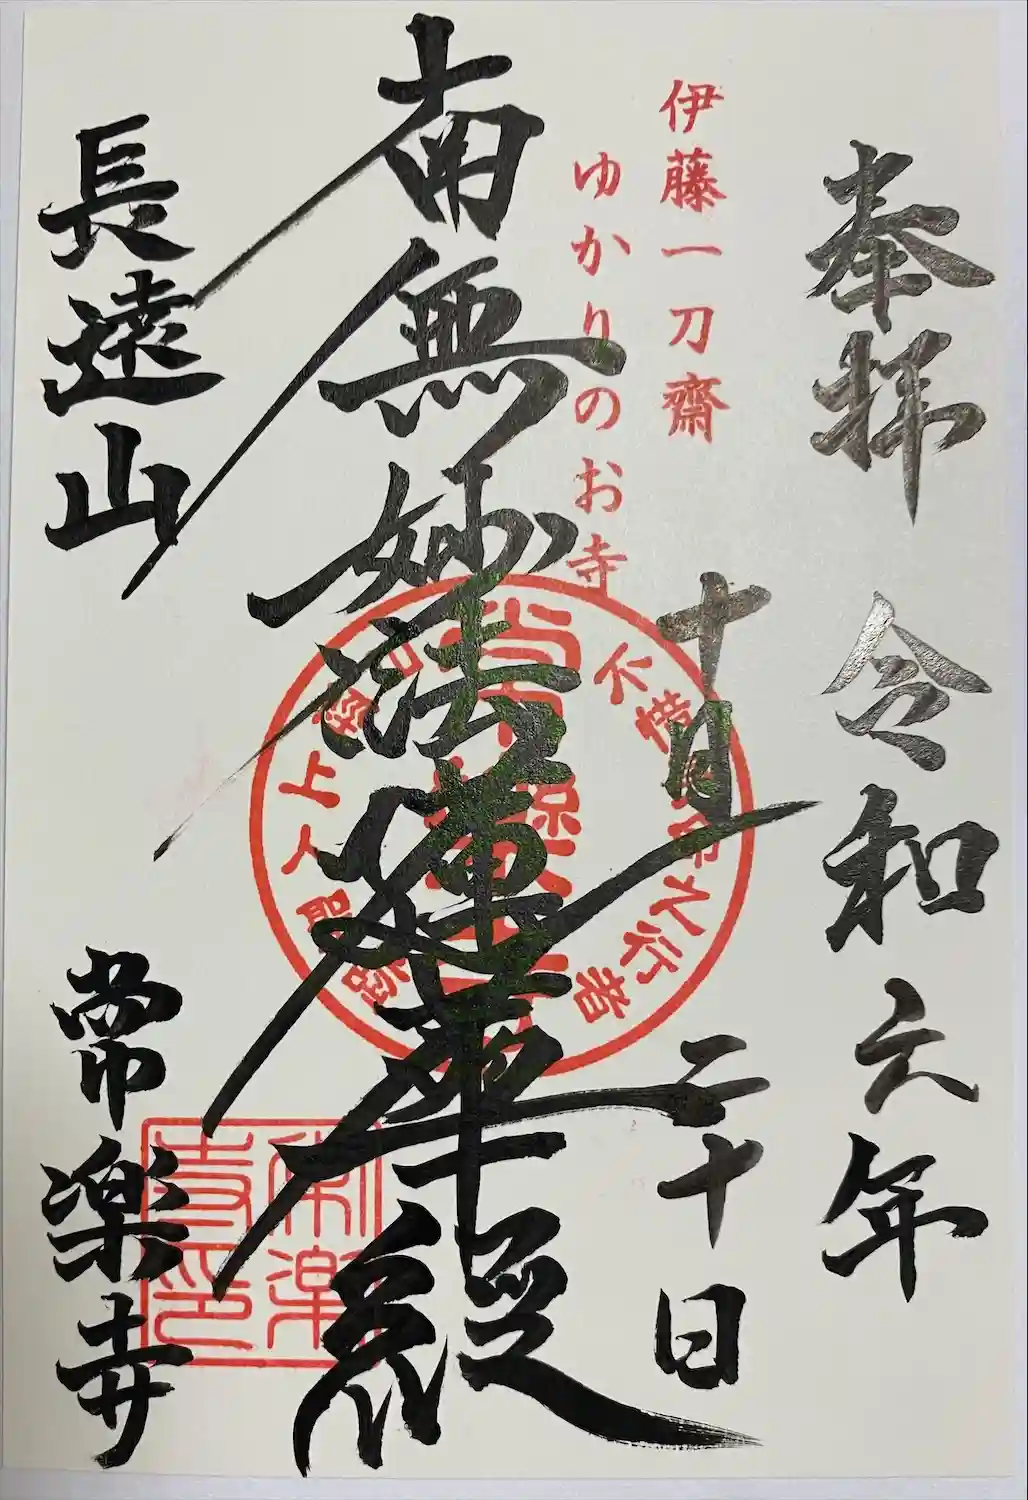 奉拝 令和六年
十月二十日
伊藤一刀齋
ゆかりのお寺
南無妙法蓮華経
長遠山
常楽寺
常楽寺印